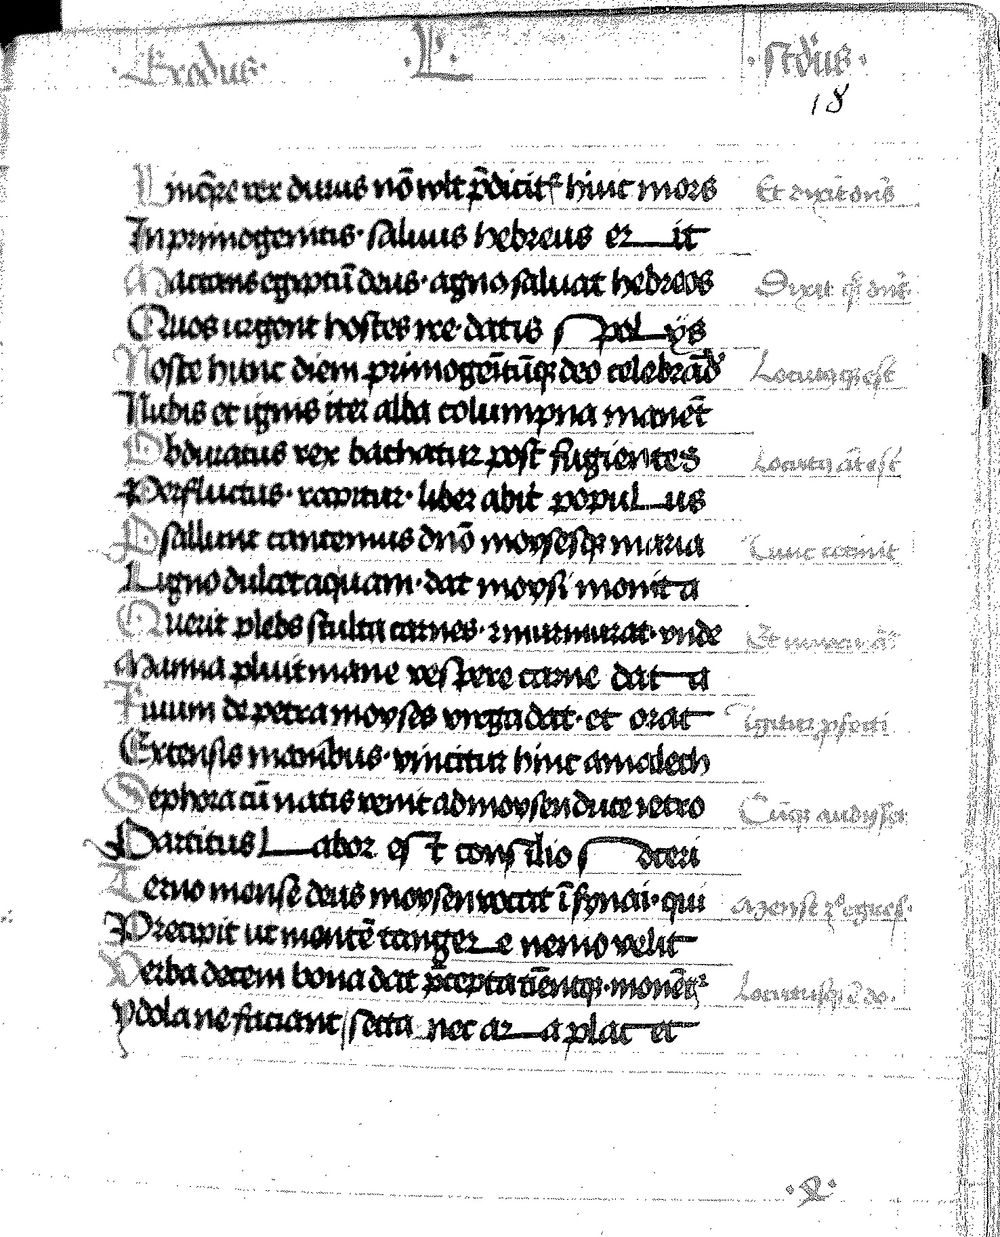 ·Exodus· ·L· ·scdus·
18
Lincꝗre rex durus nō wlt p̄dicit hinc mors Et dixit dn̄s
In primogenitis· saluus hebreus er it
Mactans egiptū deus· agno saluat hebreos Dixit qꝫ dn̄s
Quos urgent hostes rex datis spol ijs
Noste hunc diem primogeītūqꝫ deo celebrād Locutusqꝫ est
Nubis et ignis iter alba columpna manēt
Obduratus rex bachatur post fugientes Locutꝯ āt est
Per fluctus· rapitur· liber abit popul us
Psallunt cantemus dnō moysesqꝫ maria Tunc cecinit
Ligno dulcet aquam· dat moysi monit a
Querit plebs stulta carnes· ⁊ murmurat· vnde
Manna pluit mane vespere carne dat a
Fluuium de petra moyses virga dat· et orat igitur pfecti
Extensis manibus· vincitur hinc amalech
Sephora cū natis venit ad moysen duce ietro Cūqꝫ audisset
Partitus L abor est consilio soceri
Terno mense deus moysen vocat ī synai· qui
Precipit ut montē tanger e nemo velit
Verba decem bona dat p̄cepta tīentqꝫ· monēt Locutusqꝫ ē do·
ydola ne faciant secta nec ar a plac et